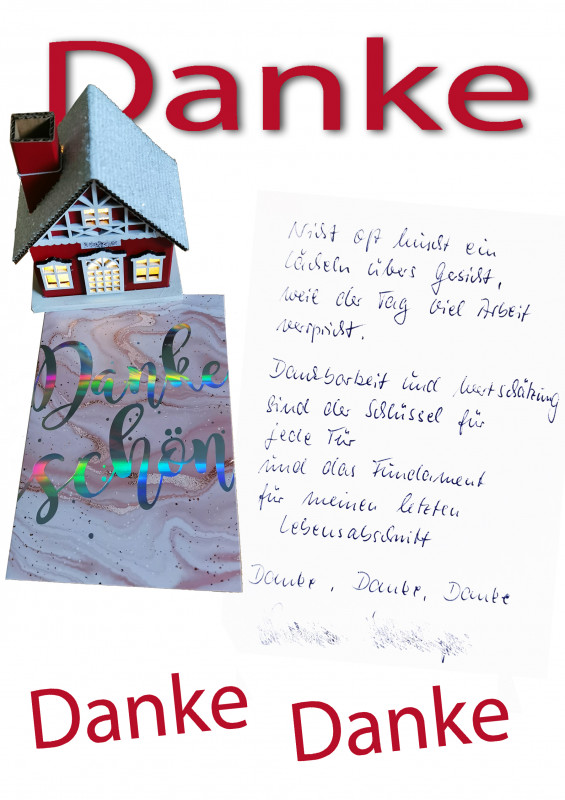 Danke
Danke
schön
Nicht oft huscht ein
Lächeln übers Gesicht,
weil der Tag viel Arbeit
verspricht.
Dankbarkeit und Wertschätzung
sind der Schlüssel für
jede Tür
und das Fundament
für meinen letzten
Lebensabschnitt
Danke, Danke, Danke
Danke
Danke